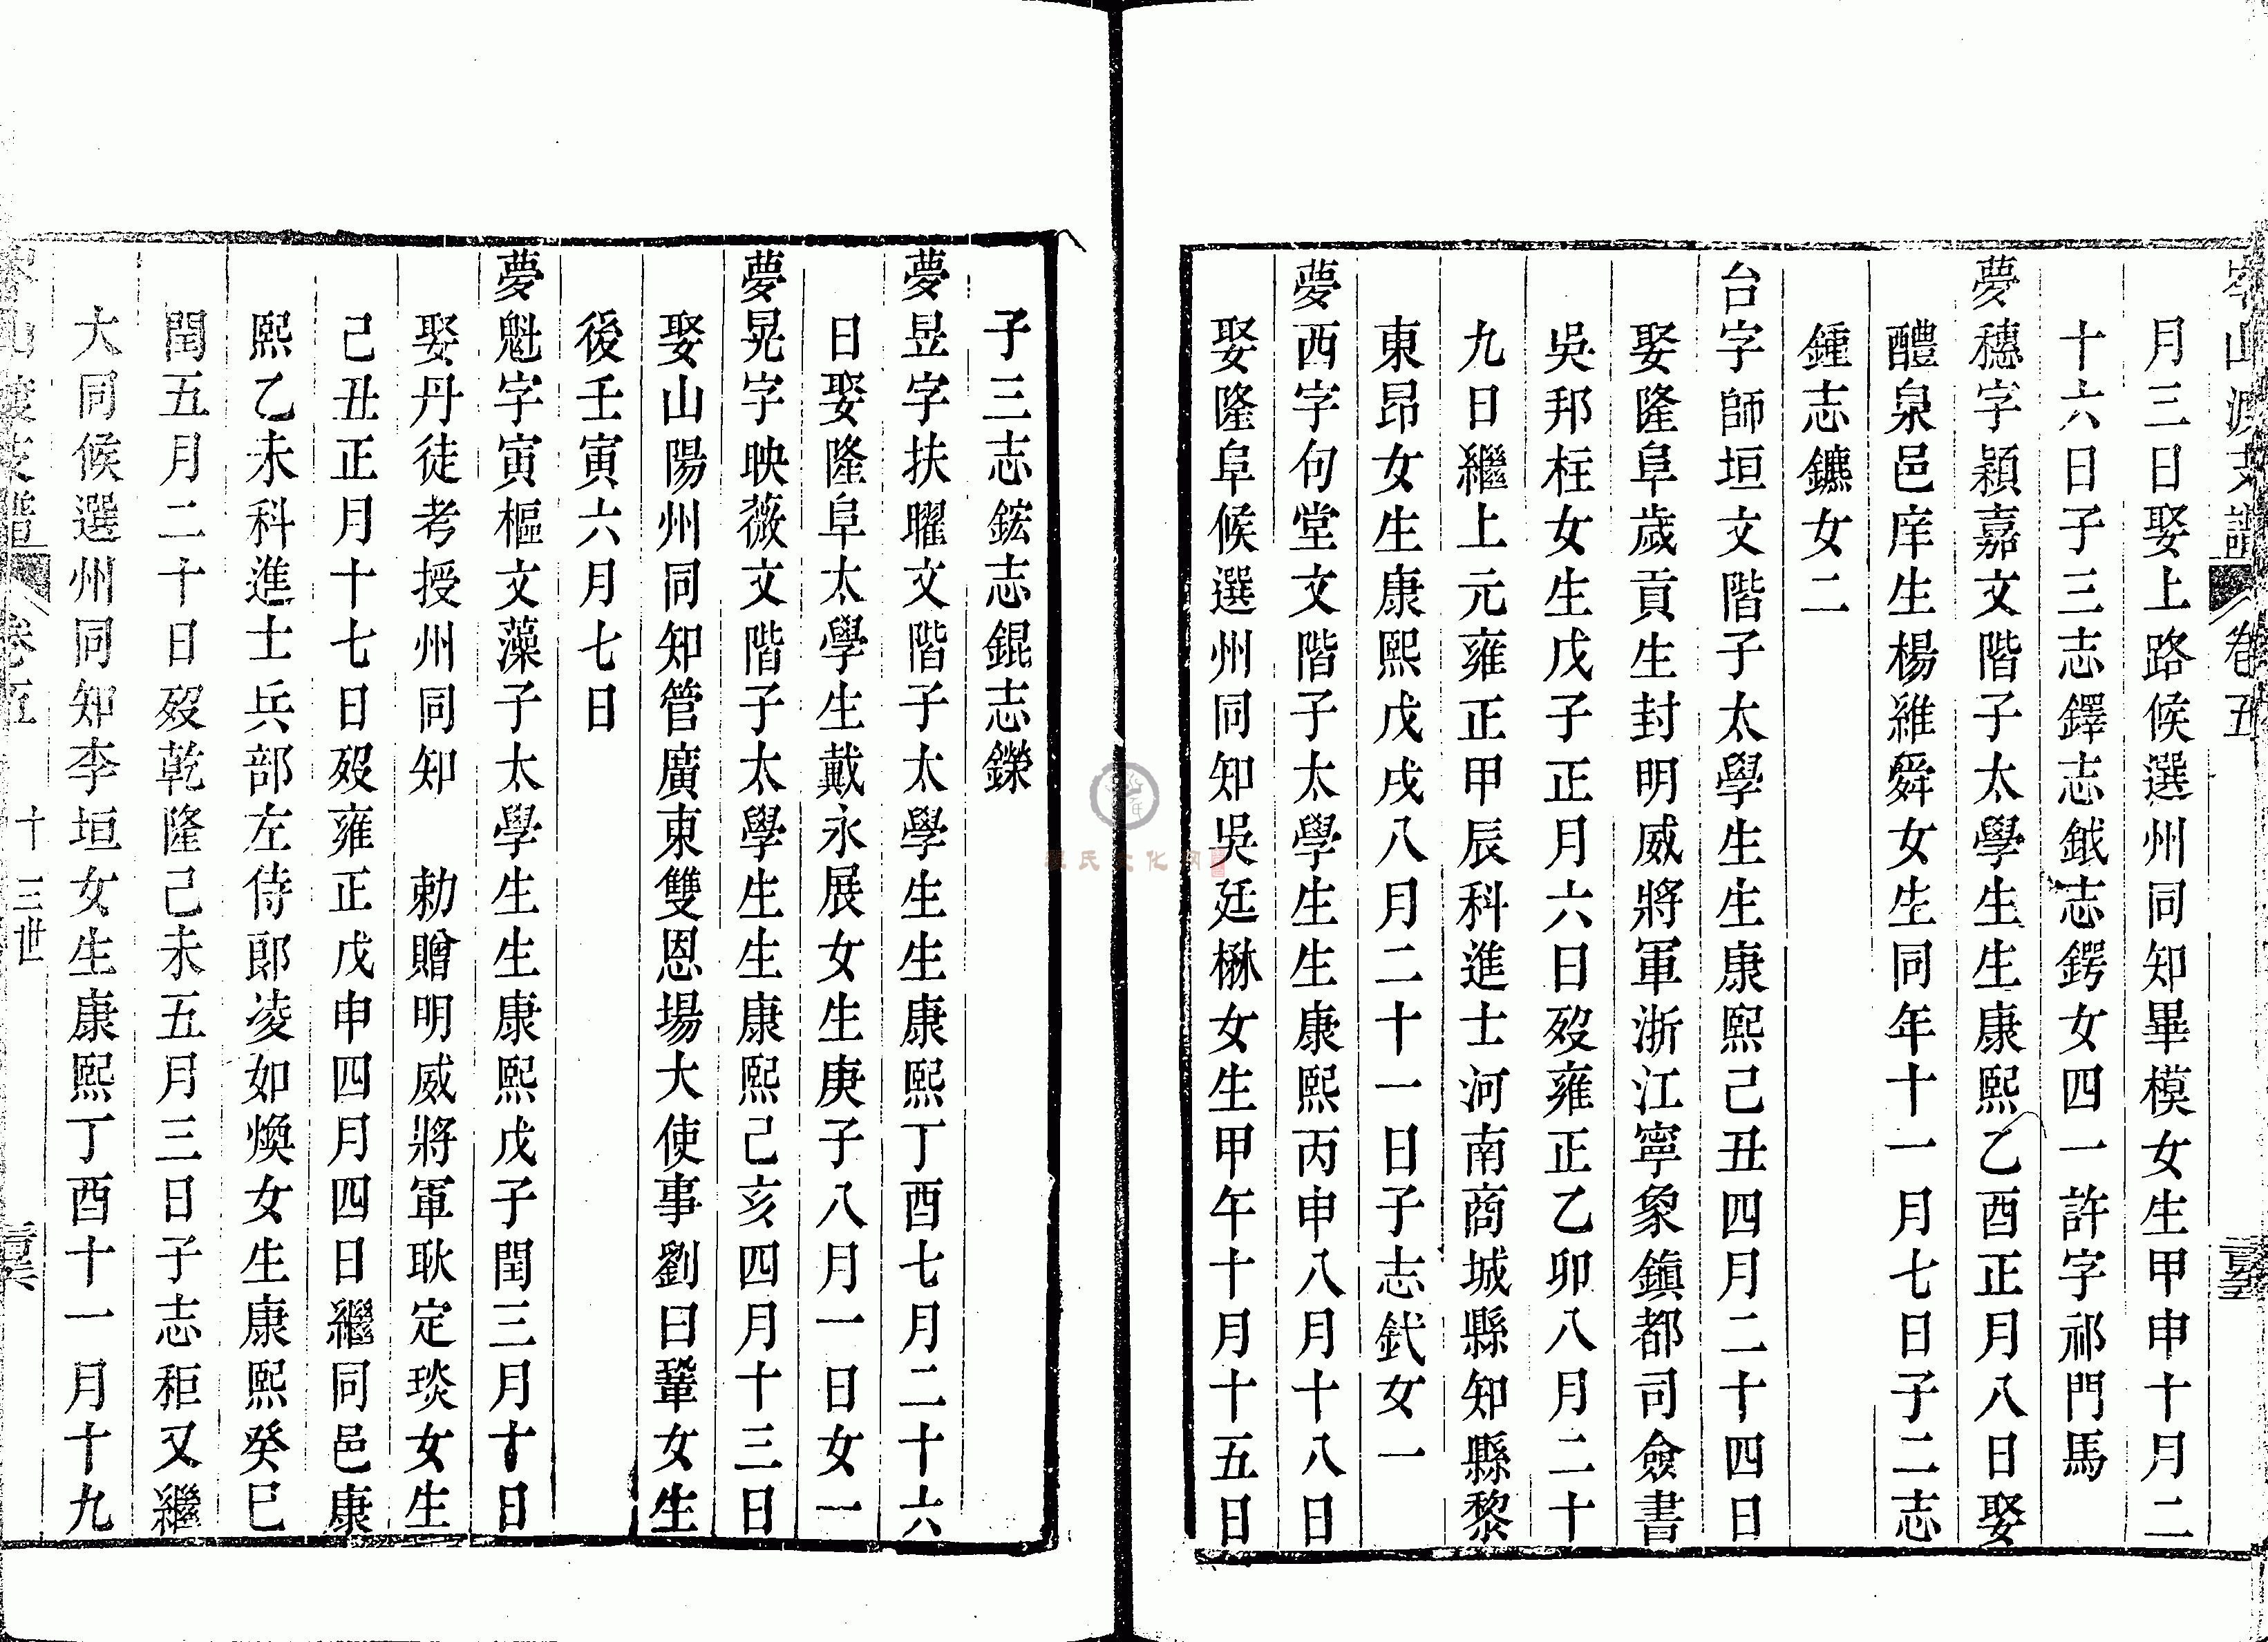 卷五
月三日娶上路候選州同知畢模女生甲申十月二
十六日子三志鐸志鉞志鍔女四一許字祁門馬
夢穗字穎嘉文階子太學生生康熙乙酉正月八日娶
醴泉邑庠生楊維舜女生同年十一月七日子二志
鍾志鑣女二
台字師垣文階子太學生生康熙己丑四月二十四日
娶隆阜歲貢生封明威將軍浙江寧象鎮都司僉書
吳邦柱女生戊子正月六日歿雍正乙卯八月二十
九日繼上元雍正甲辰科進士河南商城縣知縣黎
東昂女生康熙戊戌八月二十一日子志釴女一
夢西字句堂文階子太學生生康熙丙申八月十八日
娶隆阜候選州同知吳廷楙女生甲午十月十五日
子三志鋐志錕志鑅
夢昱字扶曜文階子太學生生康熙丁酉七月二十六
日娶隆阜太學生戴永展女生庚子八月一日女一
夢晃字映薇文階子太學生生康熙己亥四月十三日
娶山陽州同知管廣東雙恩場大使事劉曰鞏女生
後壬寅六月七日
夢魁字寅樞文藻子太學生生康熙戊子閏三月十日
娶丹徒考授州同知 勅贈明威將軍耿定琰女生
己丑正月十七日歿雍正戊申四月四日繼同邑康
熙乙未科進士兵部左侍郎凌如煥女生康熙癸巳
閏五月二十日歿乾隆己未五月三日子志秬又繼
大同候選州同知李垣女生康熙丁酉十一月十九
卷五 十三世